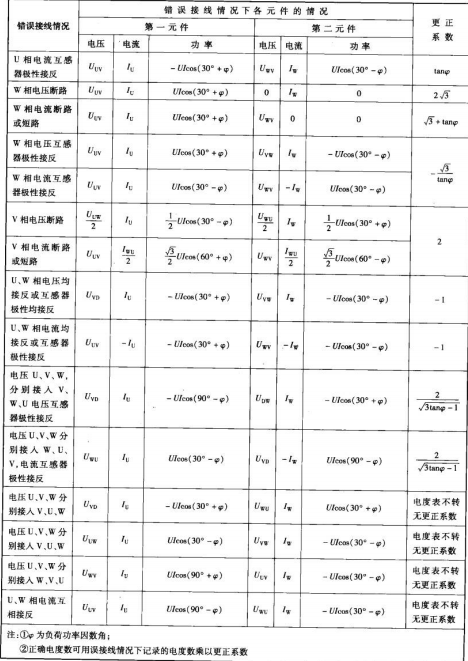 错误接线情况
错误接线情况下各元件的情况
更正系数
第一元件
第二元件
电压 电流 功率 电压 电流 功率
U相电流互感器极性接反 U_UV I_U -UIcos(30°+φ) U_WV I_W UIcos(30°-φ) tanφ
W相电压断路 U_UV I_U UIcos(30°+φ) 0 I_W 0 2√3
W相电流断路或短路 U_UV I_U UIcos(30°+φ) U_WV 0 0 √3+tanφ
W相电压互感器极性接反 U_UV I_U UIcos(30°+φ) U_VW I_W -UIcos(30°-φ) -√3/tanφ
W相电流互感器极性接反 U_UV I_U UIcos(30°+φ) U_WV -I_W UIcos(30°-φ)
V相电压断路 U_UW/2 I_U 1/2 UIcos(30°-φ) U_WU/2 I_W 1/2 UIcos(30°+φ) 2
V相电流断路或短路 U_UV I_WU/2 √3/2 UIcos(60°+φ) U_WV I_WU/2 √3/2 UIcos(60°-φ)
U、W相电压均接反或互感器极性均接反 U_VD I_U -UIcos(30°+φ) U_VW I_W -UIcos(30°-φ) -1
U、W相电流均接反或互感器极性接反 U_UV -I_U -UIcos(30°+φ) U_WV -I_W -UIcos(30°-φ) -1
电压U、V、W,分别接人V、W、U电压互感器极性接反 U_VD I_U -UIcos(90°-φ) U_DW I_W -UIcos(30°+φ) 2/√3tanφ-1
电压U、V、W分别接人W、U、V,电流互感器极性接反 U_WU I_U UIcos(30°-φ) U_VD -I_W UIcos(90°-φ) 2/√3tanφ-1
电压U、V、W分别接人V、U、W U_VD I_U -UIcos(30°+φ) U_WU I_W UIcos(30°+φ) 电度表不转无更正系数
电压U、V、W分别接人V、U、W U_UW I_U UIcos(30°-φ) U_VW I_W -UIcos(30°-φ) 电度表不转无更正系数
电压U、V、W分别接人W、V、U U_WV I_U UIcos(90°+φ) U_UV I_W -UIcos(30°-φ) 电度表不转无更正系数
U、W相电流互相接反 U_UV I_U UIcos(90°-φ) U_WU I_W -UIcos(30°-φ) 电度表不转无更正系数
注:①φ为负荷功率因数角;
②正确电度数可用误接线情况下记录的电度数乘以更正系数